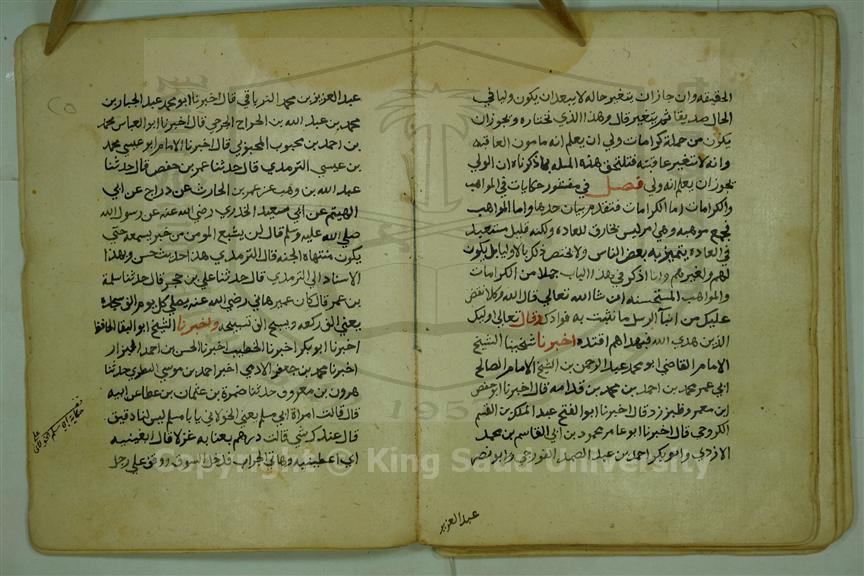 الحقيقه وان جاز ان يتغير حاله لا يبعد ان يكون وليا في
الحال صديقا ثم يتغير قال وهذا الذي نختاره ويجوز ان
يكون من جملة كرامات ولي ان يعلم انه مامون العاقبه
وانه لا تتغير عاقبته فتلتحق هذه المسله بما ذكرناه ان الولي
يجوز ان يعلم انه ولي فصل في منثور حكايات في المواهب
والكرامات اما الكرامات فتقدم بيان حدها واما المواهب
فجمع موهبه وهي امر ليس بخارق للعاده ولكنه قليل مستبعد
في العاده يتميز به بعض الناس ولا يختص ذلك بالاوليا بل يكون
لهم ولغيرهم وانا اذكر في هذا الباب جملا من الكرامات
والمواهب المستحسنه ان شا الله تعالي قال الله وكلا نقص
عليك من انبآ الرسل ما نثبت به فوادك وقال تعالي اوليك
الذين هدي الله فبهداهم اقتده اخبرنا شيخنا الشيخ
الامام القاضي ابو محمد عبد الرحمن بن الشيخ الامام الصالح
ابي عمر محمد بن احمد بن محمد بن قدامه قال اخبرنا ابو حفص
ابن معمر بن طبرزد قال اخبرنا ابو الفتح عبد الملك بن القسم
الكروخي قال اخبرنا ابو عامر محمود بن ابي القاسم بن محمد
الازدي وابو بكر احمد بن عبد الصمد الغورجي وابو نصر
عبد العزيز
عبد العزيز بن محمد الترياقي قال اخبرنا ابو محمد عبد الجبار بن
محمد بن عبد الله بن الجراح الجرحي قال اخبرنا ابو العباس محمد
بن احمد بن محبوب المحبوبي قال اخبرنا الامام ابو عيسي محمد
بن عيسي الترمدي قال حدثنا عمر بن حفص قال حدثنا
عبد الله بن وهب عن عمر بن الحارث عن دراج عن ابي
الهيثم عن ابي سعيد الخدري رضي الله عنه عن رسول الله
صلي الله عليه وسلم قال لن يشبع المومن من خير يسمعه حتي
يكون منتهاه الجنه قال الترمدي هذا حديث حسن وبهذا
الاسناد الي الترمدي قال حدثنا علي بن حجر قال حدثنا سلمة
بن عمر قال كان عمير هاني رضي الله عنه يصلي كل يوم الف سجدة
يعني الف ركعه ويسبح الف تسبيحه واخبرنا الشيخ ابو البقا الحافظ
اخبرنا ابو بكر اخبرنا الخطيب اخبرنا الحسن بن احمد
اخبرنا محمد بن جعفر الادمي اخبر احمد بن موسي حدثنا
هرون بن معروف حدثنا ضمرة بن عثمان بن عطا عن ابيه
قال قالت امراة ابي مسلم يعني الخولاني يا با مسلم ليس لنا دقيق
قال عندك شي قالت درهم بعنا به غزلا قال ابغينيه
اي اعطينيه وهاتي الجراب فدخل السوق ووقف علي رجل
© King Saud University
195